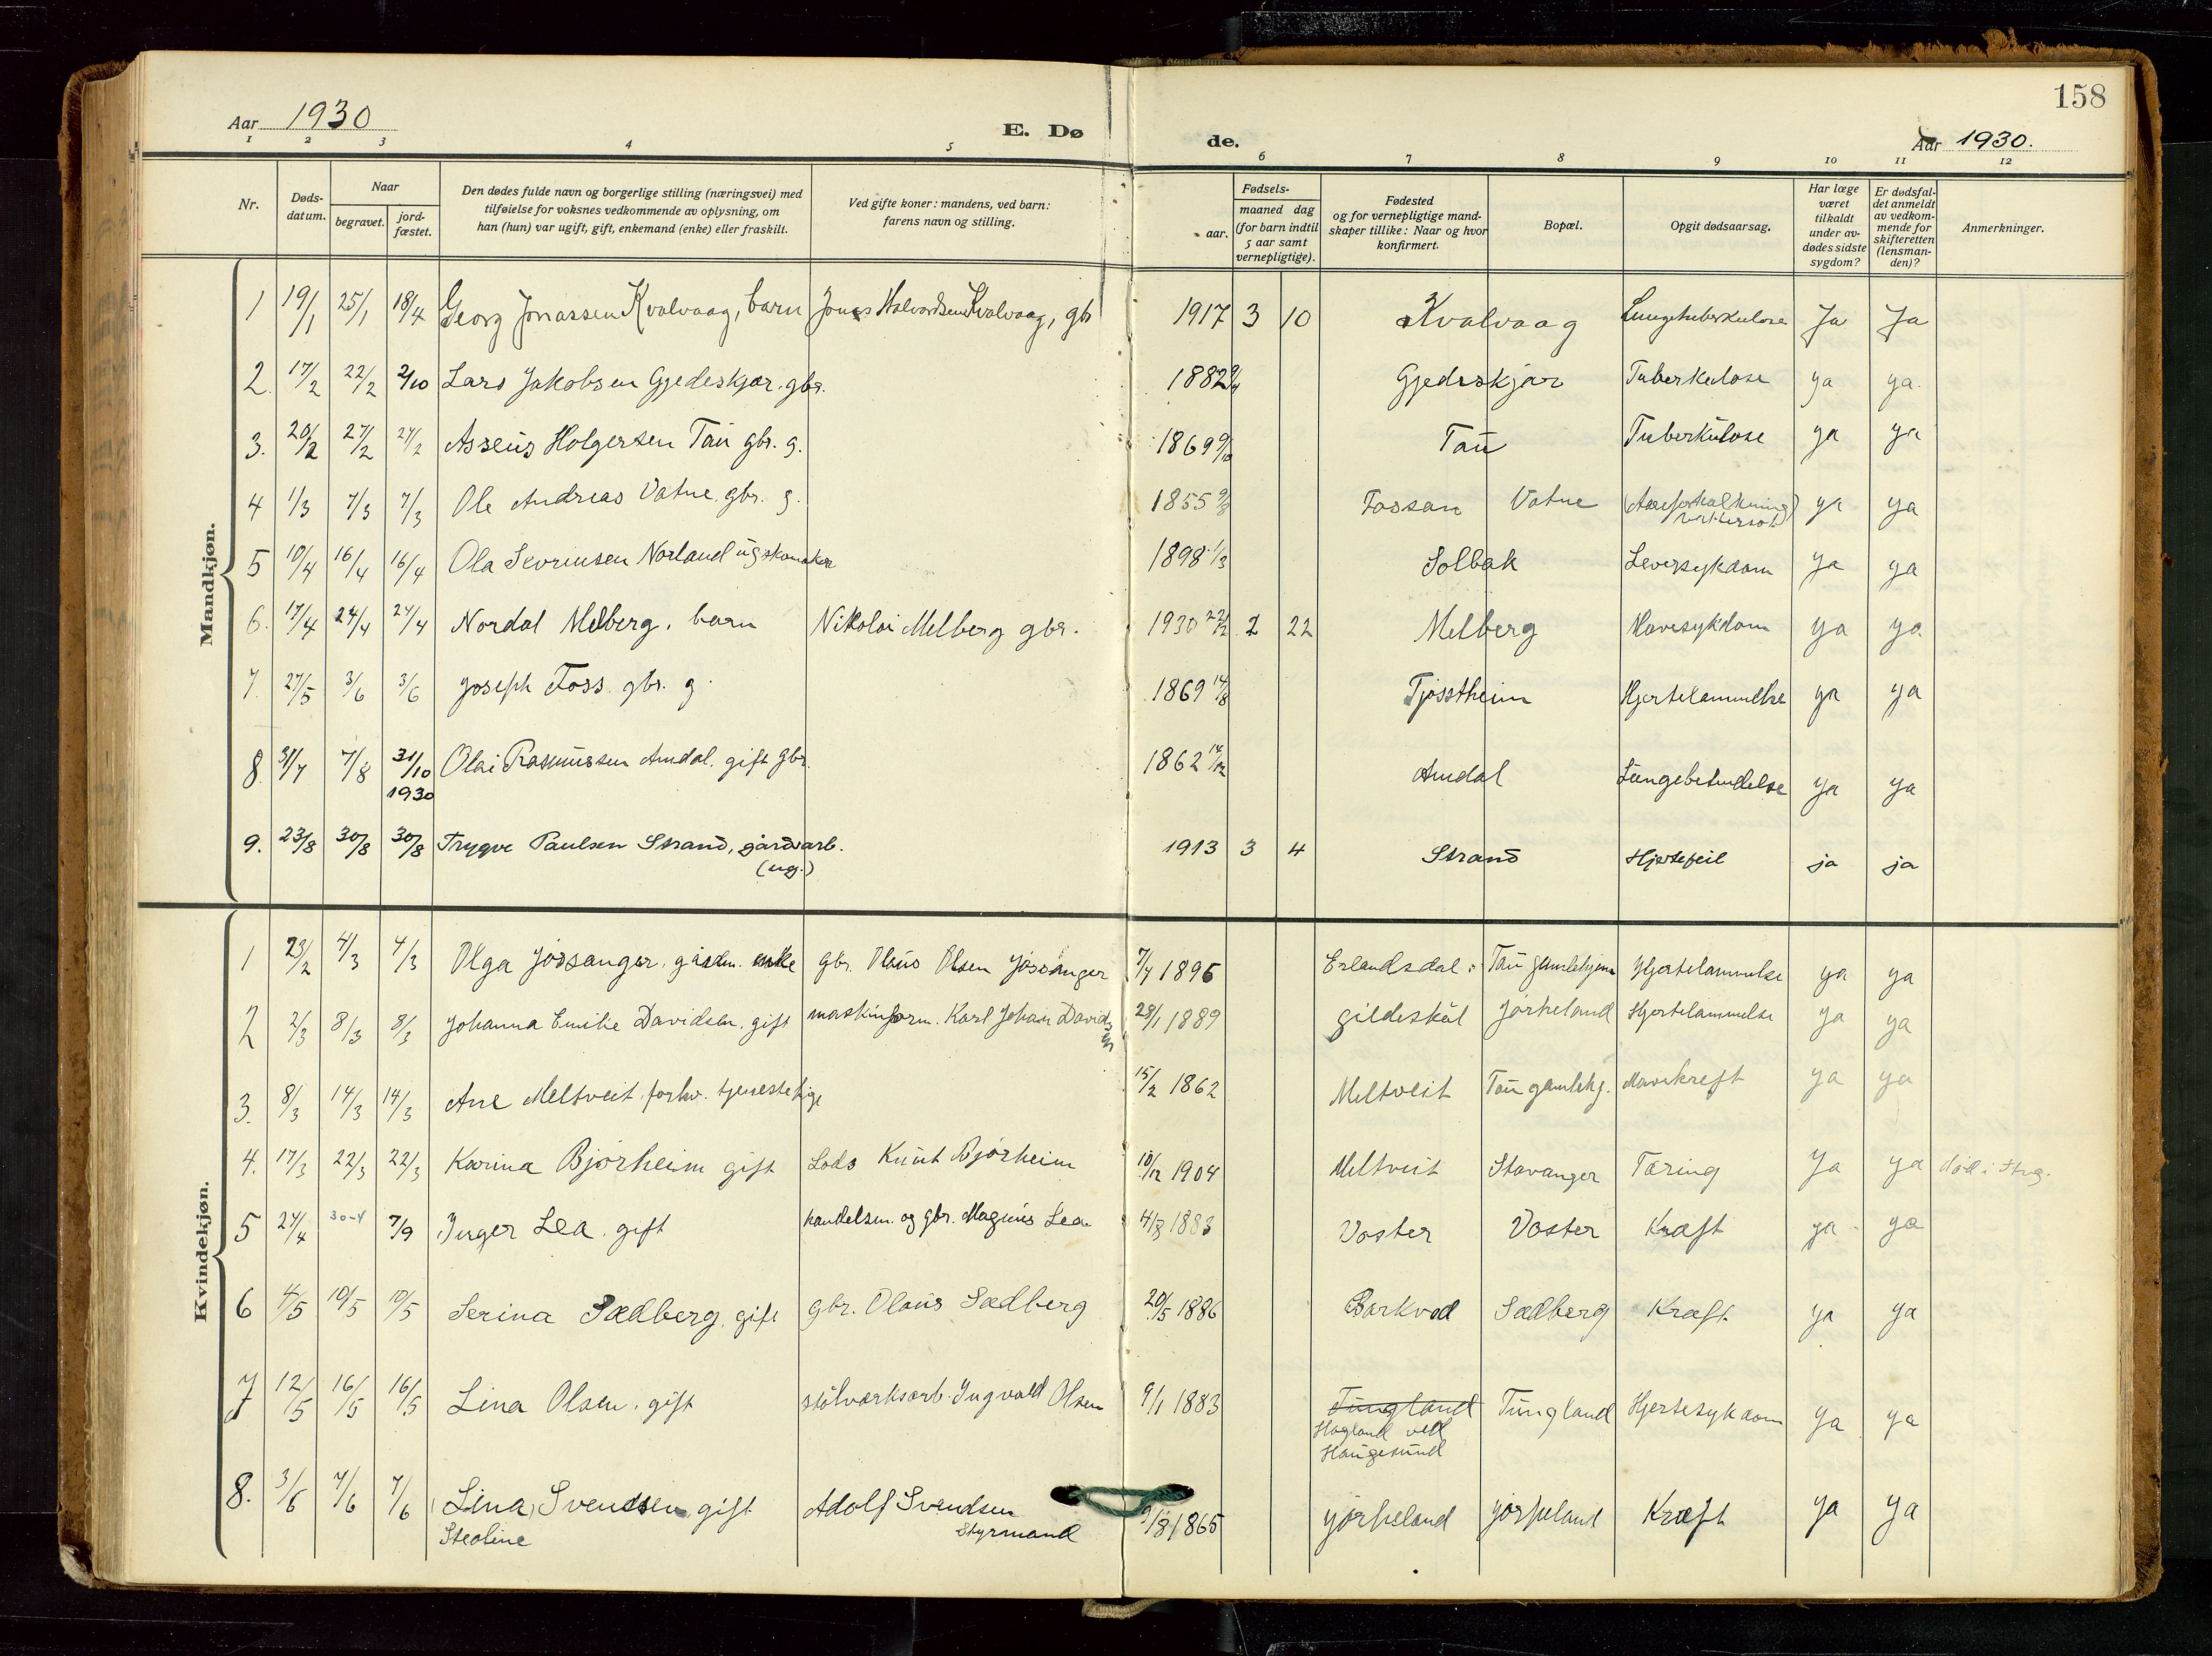 158
Aar 1930
E. Dø
de.
Aar 1930.
1 2 3 4 5 6 7 8 9 10 11 12
Nr.
Døds-
datum.
Naar
begravet.
jord-
fæstet.
Den dødes fulde navn og borgerlige stilling (næringsvei) med
tilføielse for voksnes vedkommende av oplysning, om
han (hun) var ugift, gift, enkemand (enke) eller fraskilt.
Ved gifte koner: mandens, ved barn:
farens navn og stilling.
Fødsels-
aar.
maaned dag
(for barn indtil
5 aar samt
vernepligtige).
Fødested
og for vernepligtige mand-
skaper tillike: Naar og hvor
konfirmert.
Bopæl.
Opgit dødsaarsag.
Har læge
været
tilkaldt
under av-
dødes sidste
sygdom?
Er dødsfal-
det anmeldt
av vedkom-
mende for
skifteretten
(lensman-
den)?
Anmerkninger.
Mandkjøn.
1 19/1 25/1 18/4 Georg Jonassen Kvalvaag, barn Jonas Halvordsen Kvalvaag, gbr 1917 3 10 Kvalvaag Lungetuberkulose Ja Ja
2. 17/2 22/2 2/10 Lars Jakobsen Gjedeskjær. gbr. 1882 Gjedeskjær Tuberkulose ya ya.
3. 20/2 27/2 27/2 Asseus Holgersen Taŭ gbr. g. 1869 9/10 Taŭ Tuberkŭlose ya ya
4 1/3 7/3 7/3 Ole Andreas Vatne. gbr. g. 1855 Fossan Vatne (Aareforkalkning) vattersot ya ya
5 10/4 16/4 16/4 Ola Sevrinsen Norland ŭg skomaker 1898 1/3 Solbak Leversykdom ya ya
6. 17/4 24/4 24/4 Nordal Melberg. barn Nikolai Melberg gbr. 1930 2 22 Melberg Mavesykdom ya ya
7. 27/5 3/6 3/6 Joseph Foss. gbr. g. 1869 14/8 Tjøstheim Hjertelammelse ya ya
8. 31/7 7/8 31/10 Olai Rasmŭssen Amdal. gift gbr. 1862 14/12 Amdal Lŭngebetendelse ya ya
1930
9. 23/8 30/8 30/8 Trygve Paulsen Strand, gårdsarb. 1913 3 4 Strand Hjertefeil ja ja
(ug.)
Kvindekjøn.
1 23/2 4/3 4/3 Olga Jøssanger. gårdm. enke gbr. Olaŭs Olsen Jøssanger 7/7 1896 Erlandsdal. Taŭ gamlehjem Hjertelammelse ya ya
2 2/3 8/3 8/3 Johanna Emilie Davidsen. gift maskinform. Karl Johan Davidsen 28/1 1889 Gildeskål Jørpeland Hjertelammelse ya ya
3. 8/3 14/3 14/3 Ane Meltveit. forhv. tjenestepige 15/2 1862 Meltveit Taŭ gamlehj. Mavekreft ya ya
4. 17/3 22/3 22/3 Karina Bjørheim gift Lods Knŭt Bjørheim 10/12 1904 Meltveit Stavanger Tæring Ja ya død i Stvg.
5 24/4 30-4 7/9 Inger Lea. gift handelsm. og gbr. Magnŭs Lea 4/3 1883 Voster Voster Kræft ya ya
6 4/5 10/5 10/5 Serina Sædberg. gift gbr. Olaŭs Sædberg 20/5 1886 Barkved Sædberg Kræft. ya ya
7 12/5 16/5 16/5 Lina Olsen. gift stålverksarb. Ingvald Olsen 9/1 1883 Tŭngland Tŭngland Hjertesykdom ya ya
Hagland ved
Haŭgesŭnd
8. 3/6 7/6 7/6 (Lina) Svendsen gift Adolf Svendsen 9/8 1865 Jørpeland Jørpeland Kræft ya ya
Steoline Styrmand